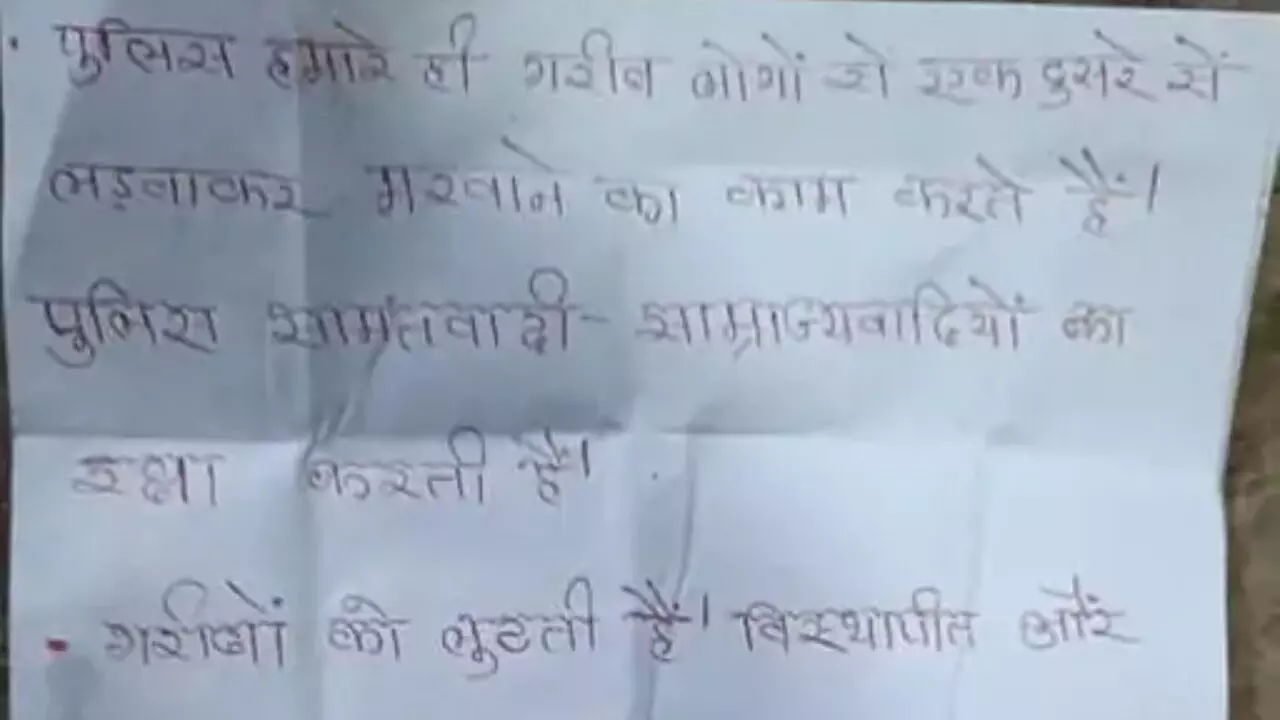 • पुलिस हमारे ही गरीब लोगों से एक दुसरे से
लड़वाकर मरवाने का काम करते हैं।
पुलिस सामंतवादी - साम्राज्यवादियों का
रक्षा करती है।
- गरीबों को लुटती हैं। विस्थापीत और